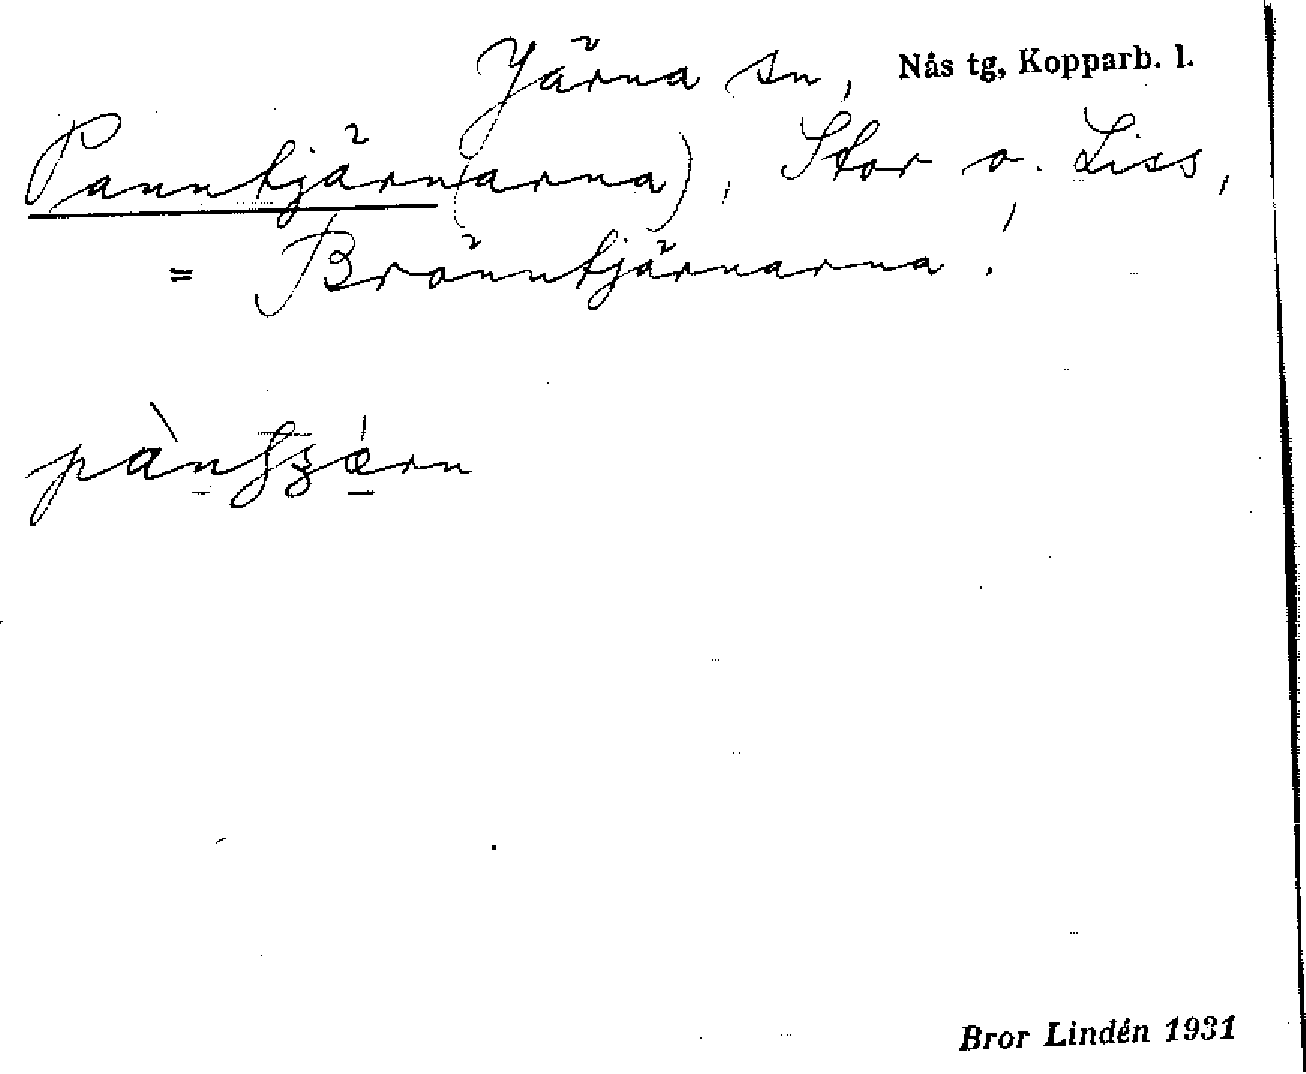 Järna sn, Nås tg, Kopparb. l.
Panntjärn(arna), Stor o. Liss,
= Bränntjärnarna.
Bror Lindén 1931